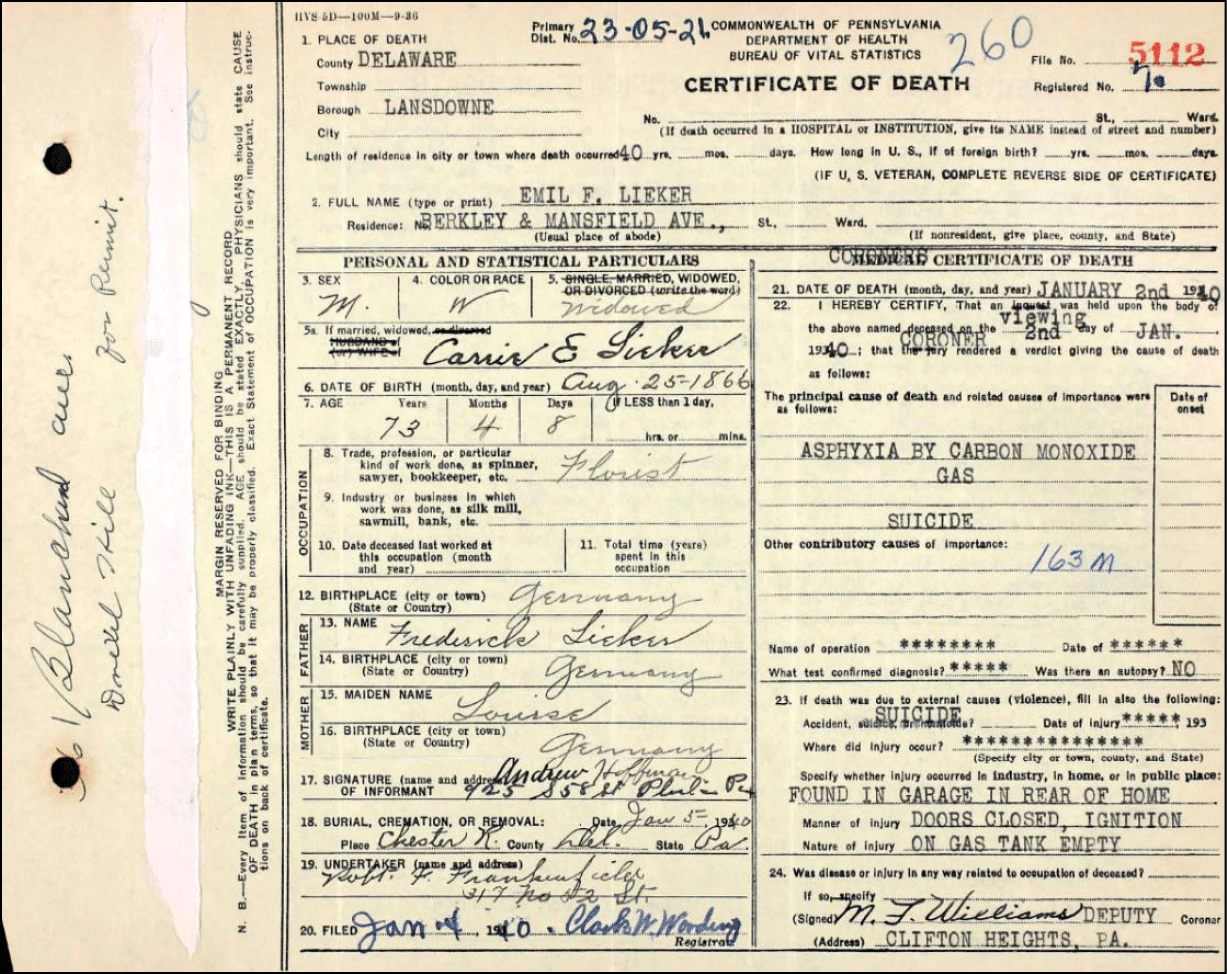 HVS 5D—100M—9-36
Primary Dist. No. 23-05-21
COMMONWEALTH OF PENNSYLVANIA
DEPARTMENT OF HEALTH
BUREAU OF VITAL STATISTICS
260
File No. 5112
CERTIFICATE OF DEATH
Registered No. 7.
1. PLACE OF DEATH
County DELAWARE
Township
Borough LANSDOWNE
City
No. St., Ward.
(If death occurred in a HOSPITAL or INSTITUTION, give its NAME instead of street and number)
Length of residence in city or town where death occurred 40 yrs. mos. days. How long in U. S., if of foreign birth? yrs. mos. days.
(IF U. S. VETERAN, COMPLETE REVERSE SIDE OF CERTIFICATE)
2. FULL NAME (type or print) EMIL F. LIEKER
Residence: No. BERKLEY & MANSFIELD AVE., St., Ward.
(Usual place of abode) (If nonresident, give place, county, and State)
PERSONAL AND STATISTICAL PARTICULARS
3. SEX
M.
4. COLOR OR RACE
W
5. SINGLE, MARRIED, WIDOWED,
OR DIVORCED (write the word)
Widowed
5a. If married, widowed, or divorced
HUSBAND of
(or) WIFE of
Carrie E Lieker
6. DATE OF BIRTH (month, day, and year) Aug. 25-1866
7. AGE Years Months Days If LESS than 1 day,
73 4 8 hrs. or mins.
OCCUPATION
8. Trade, profession, or particular
kind of work done, as spinner,
sawyer, bookkeeper, etc. Florist
9. Industry or business in which
work was done, as silk mill,
sawmill, bank, etc.
10. Date deceased last worked at
this occupation (month
and year)
11. Total time (years)
spent in this
occupation
12. BIRTHPLACE (city or town) Germany
(State or Country)
FATHER
13. NAME Frederick Lieker
14. BIRTHPLACE (city or town)
(State or Country) Germany
MOTHER
15. MAIDEN NAME Louise
16. BIRTHPLACE (city or town)
(State or Country) Germany
17. SIGNATURE (name and address) Andrew Hoffman
OF INFORMANT 925 S 58 St Phila Pa
18. BURIAL, CREMATION, OR REMOVAL: Date Jan 5, 1940
Place Chester R. County Del. State Pa.
19. UNDERTAKER (name and address)
Robt. F. Frankenfield
317 No 52 St.
20. FILED Jan 4, 1940. Clark W. Registrar
CORONERS
MEDICAL CERTIFICATE OF DEATH
21. DATE OF DEATH (month, day, and year) JANUARY 2nd 1940
22. I HEREBY CERTIFY, That an inquest was held upon the body of
viewing
the above named deceased on the 2nd day of JAN.
CORONER
1940; that the jury rendered a verdict giving the cause of death
as follows:
The principal cause of death and related causes of importance were
as follows:
Date of onset
ASPHYXIA BY CARBON MONOXIDE
GAS
SUICIDE
Other contributory causes of importance:
163 M
Name of operation ******** Date of ******
What test confirmed diagnosis? ***** Was there an autopsy? NO
23. If death was due to external causes (violence), fill in also the following:
SUICIDE
Accident, suicide, or homicide? Date of injury ***** 193
Where did injury occur? ***************
(Specify city or town, county, and State)
Specify whether injury occurred in industry, in home, or in public place:
FOUND IN GARAGE IN REAR OF HOME
Manner of injury DOORS CLOSED, IGNITION
Nature of injury ON GAS TANK EMPTY
24. Was disease or injury in any way related to occupation of deceased?
If so, specify
(Signed) M. J. Williams DEPUTY Coroner
(Address) CLIFTON HEIGHTS, PA.
MARGIN RESERVED FOR BINDING
WRITE PLAINLY WITH UNFADING INK—THIS IS A PERMANENT RECORD
N. B.—Every item of information should be carefully supplied. AGE should be stated EXACTLY. PHYSICIANS should state CAUSE
OF DEATH in plain terms, so that it may be properly classified. Exact Statement of OCCUPATION is very important. See instruc-
tions on back of certificate.
Blanchard
Drexel Hill for Permit.